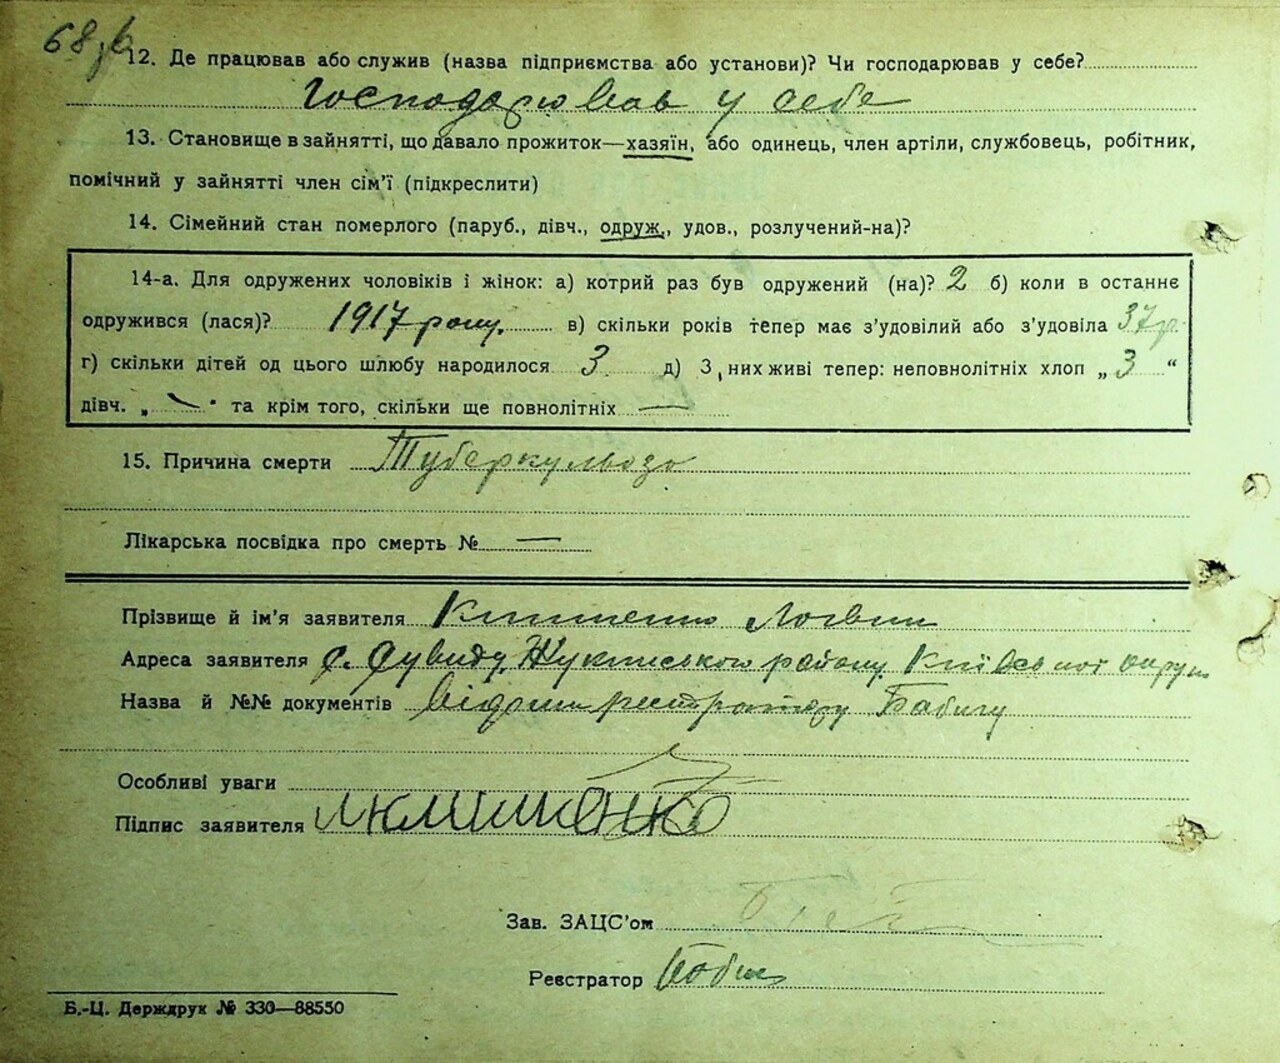 12. Де працював або служив (назва підприємства або установи)? Чи господарював у себе?
Господарював у себе
13. Становище в зайнятті, що давало прожиток—хазяїн, або одинець, член артілі, службовець, робітник,
помічний у зайнятті член сім'ї (підкреслити)
14. Сімейний стан померлого (паруб., дівч., одруж., удов., розлучений-на)?
14-а. Для одружених чоловіків і жінок: а) котрий раз був одружений (на)? 2 б) коли в останнє
одружився (лася)? 1917 року. в) скільки років тепер має з'удовілий або з'удовіла 37 р.
г) скільки дітей од цього шлюбу народилося 3 д) З них живі тепер: неповнолітніх хлоп „ 3 “
дівч. „ — " та крім того, скільки ще повнолітніх —
15. Причина смерти Туберкульозо
Лікарська посвідка про смерть № —
Прізвище й ім'я заявителя Клименко Логвин
Адреса заявителя с. Сувид, Жукинського району Київської округи
Назва й №№ документів реєстратору Бабичу
Особливі уваги
Підпис заявителя ЛКлименко
Зав. ЗАЦС'ом
Реєстратор
Б.-Ц. Держдрук № 330—88550